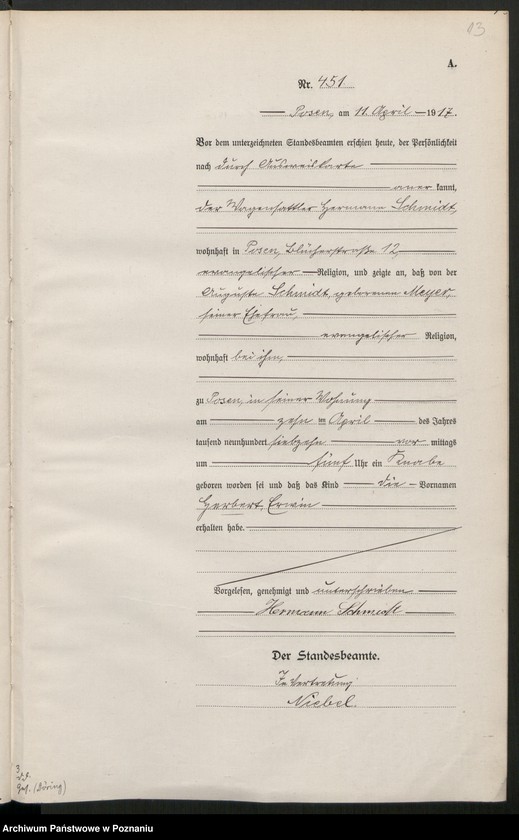 13
A.
Nr. 451
Posen, am 11. April 1917.
Vor dem unterzeichneten Standesbeamten erschien heute, der Persönlichkeit
nach durch Ausweiskarte
aner kannt,
der Wagensattler Hermann Schmidt,
wohnhaft in Posen, Blücherstraße 12,
evangelischer Religion, und zeigte an, daß von der
Auguste Schmidt, geborenen Meyer,
seiner Ehefrau,
evangelischer Religion,
wohnhaft bei ihm,
zu Posen, in seiner Wohnung
am zehn ten April des Jahres
tausend neunhundert siebzehn vor mittags
um fünf Uhr ein Knabe
geboren worden sei und daß das Kind die Vornamen
Herbert, Erwin
erhalten habe.
Vorgelesen, genehmigt und unterschrieben
Hermann Schmidt
Der Standesbeamte.
In Vertretung
Niebel.
3
(Döring)
Archiwum Państwowe w Poznaniu